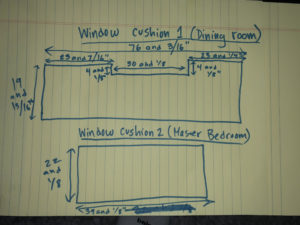 Window Cushion 1 (Dining room)
76 and 3/16"
23 and 7/16"
30 and 1/8
23 and 1/4"
4 and 1/8"
4 and 1/8"
19 and 13/16"
Window Cushion 2 (Master Bedroom)
22 and 1/8
39 and 1/8"